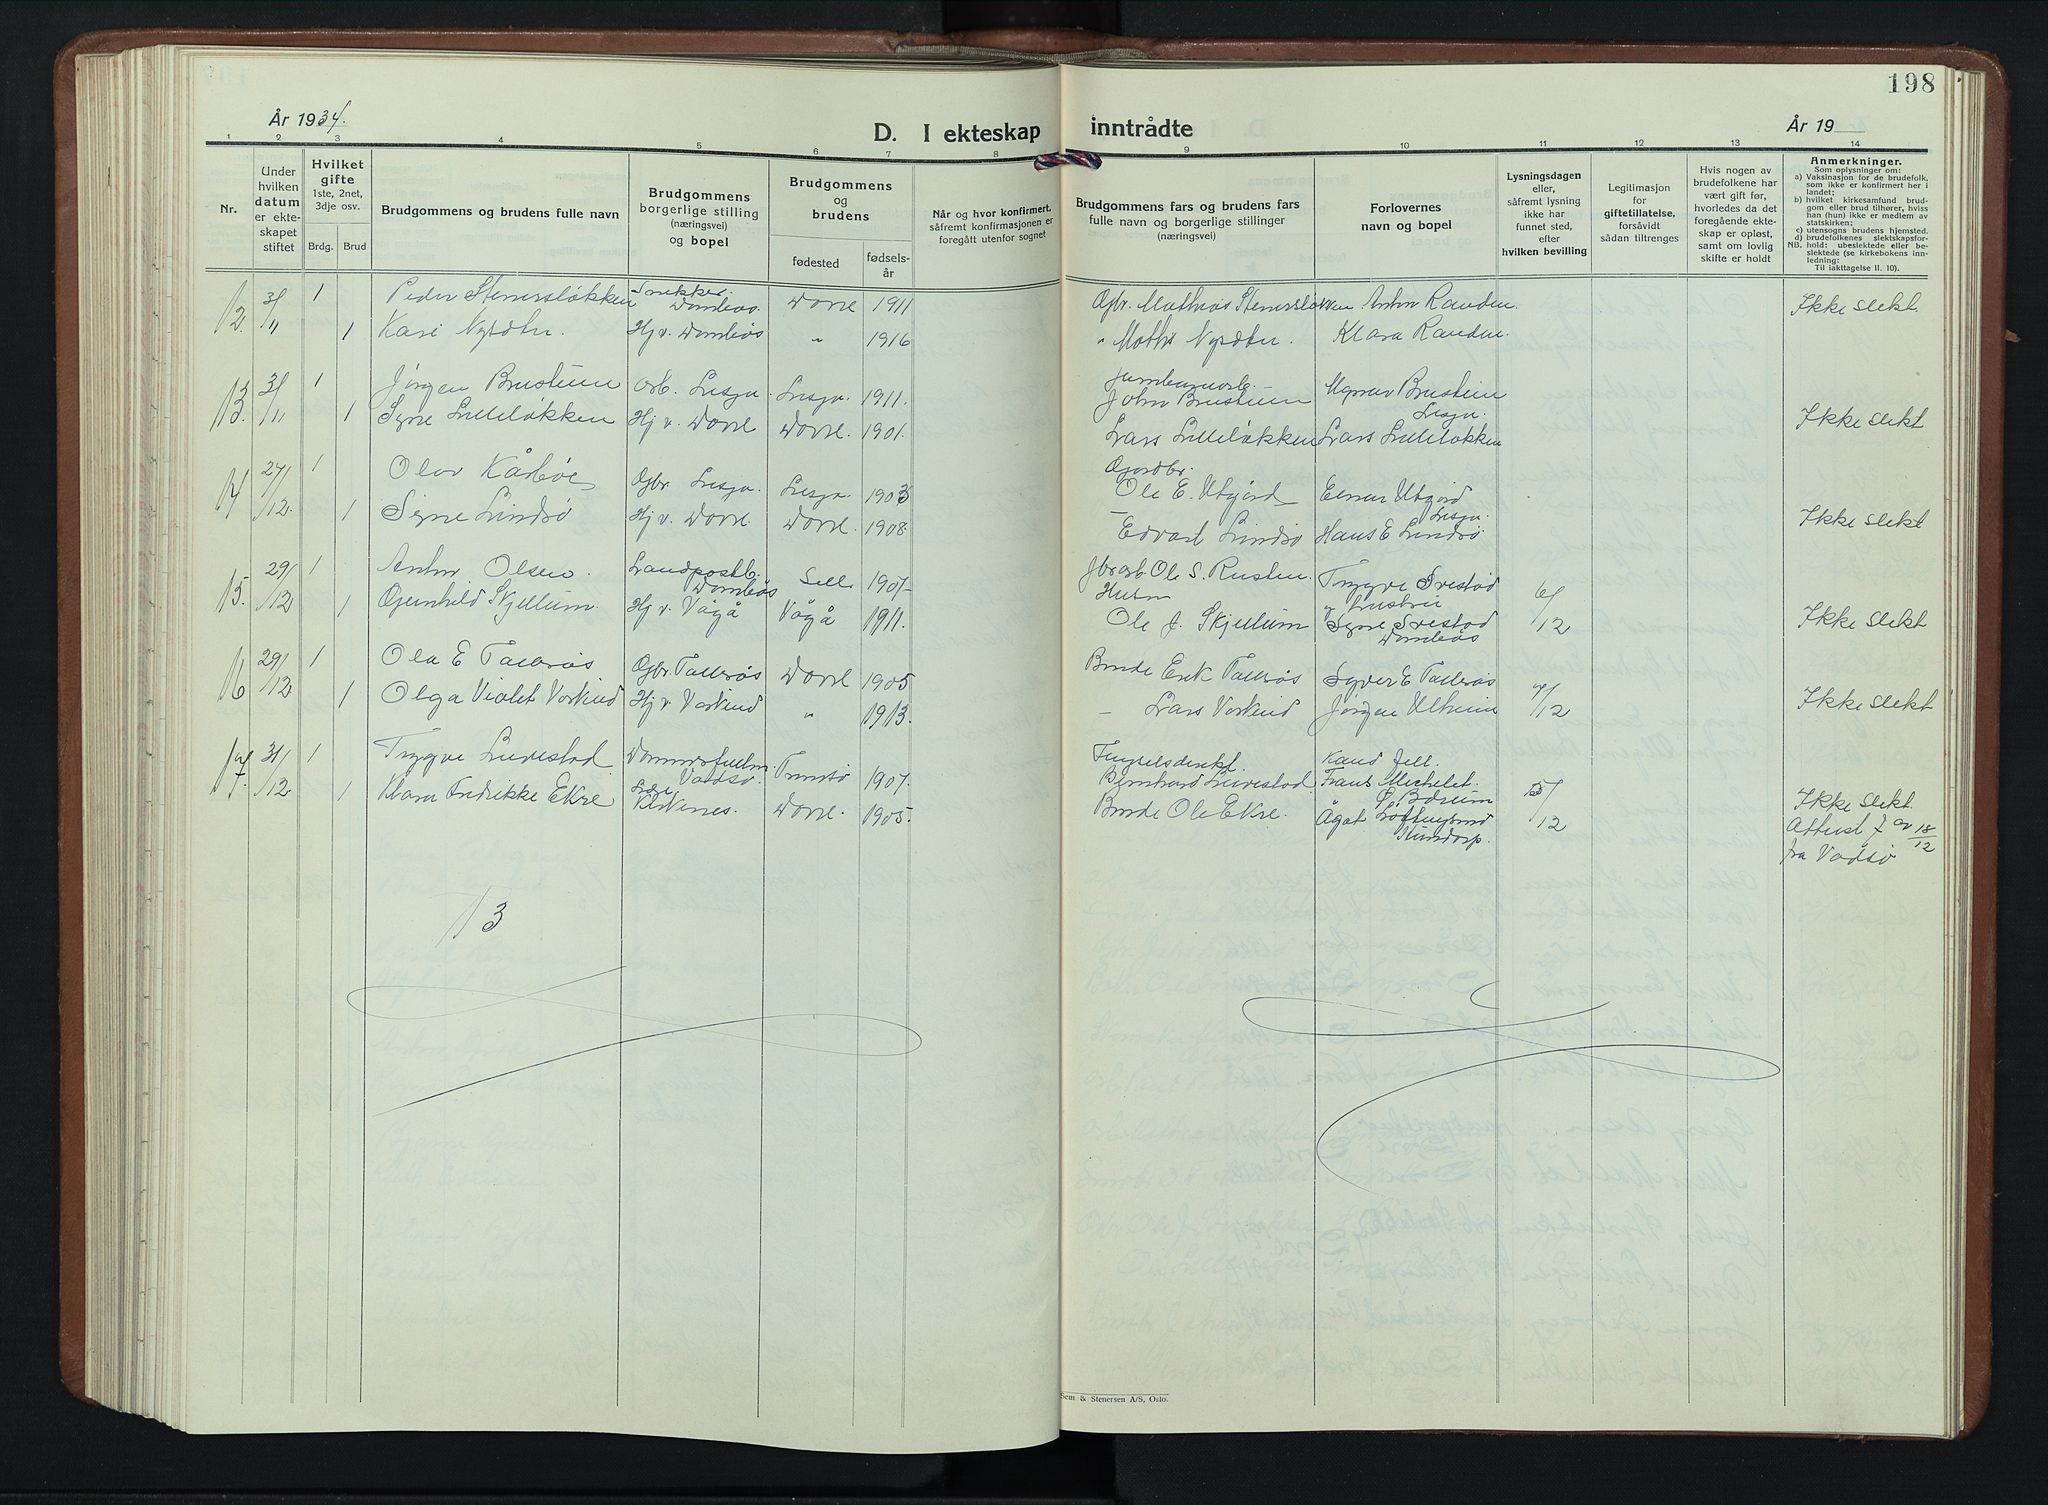 År 1934.
D. I ekteskap
1 2 3 4 5 6 7 8
Nr.
Under hvilken datum er ekteskapet stiftet
Hvilket gifte
1ste, 2net, 3dje osv.
Brdg. Brud
Brudgommens og brudens fulle navn
Brudgommens borgerlige stilling (næringsvei) og bopel
Brudgommens og brudens
fødested fødselsår
Når og hvor konfirmert, såfremt konfirmasjonen er foregått utenfor sognet
12. 3/11 1 Peder Stenersløkken Snekker Dombås. Dovre 1911
1 Kari Nysæter. Hj v. Dombås " 1916
13. 3/11 1 Jørgen Brusteun Arb. Lesja. Lesja. 1911.
1 Signe Lilleløkken Hj v. Dovre Dovre. 1901.
14 27/12. 1 Olav Kårbøe Gbr. Lesja. Lesja. 1903
1 Signe Lindsø Hj v. Dovre. Dovre 1908.
15. 29/12 1 Anton Olsen. Landpostb. Dombås Sell 1907
1 Gunhild Skjellum. Hj v. Vågå Vågå 1911.
16 29/12 1 Ola E Tallerås Gbr. Tallerås Dovre 1905
1 Olga Violet Vorkind Hj v. Vorkind " 1913.
17. 31/12 1 Trygve Lurestad Dommerfullm. Vadsø. Tromsø 1907.
1 Klara Fredrikke Ekre Kirkenes. Dovre. 1905.
13
198
inntrådte
År 19
9 10 11 12 13 14
Brudgommens fars og brudens fars fulle navn og borgerlige stillinger (næringsvei)
Forlovernes navn og bopel
Lysningsdagen eller, såfremt lysning ikke har funnet sted, efter hvilken bevilling
Legitimasjon for giftetillatelse, forsåvidt sådan tiltrenges
Hvis nogen av brudefolkene har vært gift før, hvorledes da det foregående ekteskap er opløst, samt om lovlig skifte er holdt
Anmerkninger.
Som oplysninger om:
a) Vaksinasjon for de brudefolk, som ikke er konfirmert her i landet;
b) hvilket kirkesamfund brudgom eller brud tilhører, hviss han (hun) ikke er medlem av statskirken:
c) utensogns brudens hjemsted.
d) brudefolkenes slektskapsforhold: ubeslektede eller beslektede (se kirkebokens innledning:
NB.
Til iakttagelse II. 10).
Gbr. Mathias Stenersløkken Anton Randen Ikke slekt.
" Mathis Nysæter. Klara Randen.
John Brusteun Brusteun Lesja.
Lars Lilleløkken Lars Lilleløkken Ikke slekt
Gårdbr.
Ole E. Utgård Einar Utgård Lesja.
Edvard Lindsø Hans E Lindsø Ikke slekt
Ole S. Rusten. Trygve Svestad
Ole J. Skjellum Signe Svestad Dombås 6/12 Ikke slekt
Bonde Erik Tallerås Syver E Tallerås
Lars Vorkind Jørgen Ulheim 7/12 Ikke slekt
Fengselsdirekt. Kand Fell.
Bernhard Lurestad. Frans Michelet. S. Bærum
Bonde Ole Ekre. Ågot Hundorp. 5/12 Ikke slekt.
Attest 7 av 18/12
fra Vadsø
Sem & Stenersen A/S, Oslo.